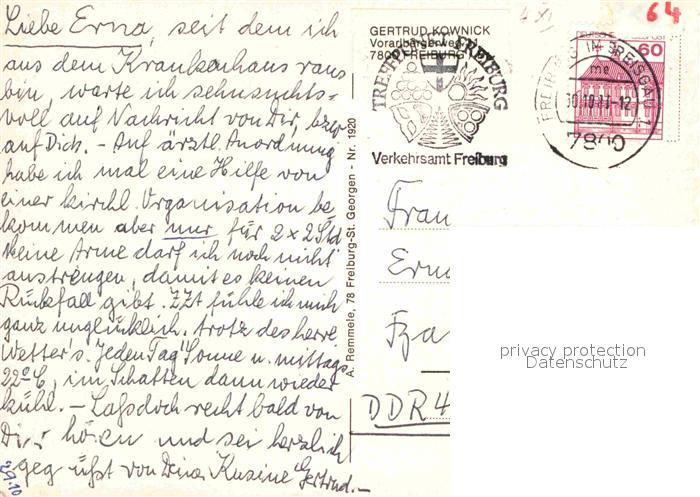 Liebe Erna, seit dem ich
aus dem Krankenhaus raus
bin, warte ich sehnsuchts-
voll auf Nachricht von Dir, bzw
auf Dich. - Auf ärztl. Anordnung
habe ich mal eine Hilfe von
einer kirchl. Organisation be
kommen aber nur für 2 x 2 Std
Meine Arme darf ich noch nicht
anstrengen, damit es keinen
Rückfall gibt. ZZt fühle ich mich
ganz unglücklich. trotz des herrl.
Wetter's. Jeden Tag Sonne u. mittags
22° C, im Schatten dann wieder
kühl. - Laß doch recht bald von
Dir hören und sei herzlich
gegrüßt von Deiner Kusine Gertrud. -
29.10
A. Remmele, 78 Freiburg-St. Georgen - Nr. 1920
GERTRUD KOWNICK
Vorarlbergerweg
7800 FREIBURG
TREFFPUNKT FREIBURG
Verkehrsamt Freiburg
64
DEUTSCHE BUNDESPOST
60
FREIBURG IM BREISGAU 1
me
-12
7800
Frau
Erna
DDR 4
privacy protection
Datenschutz